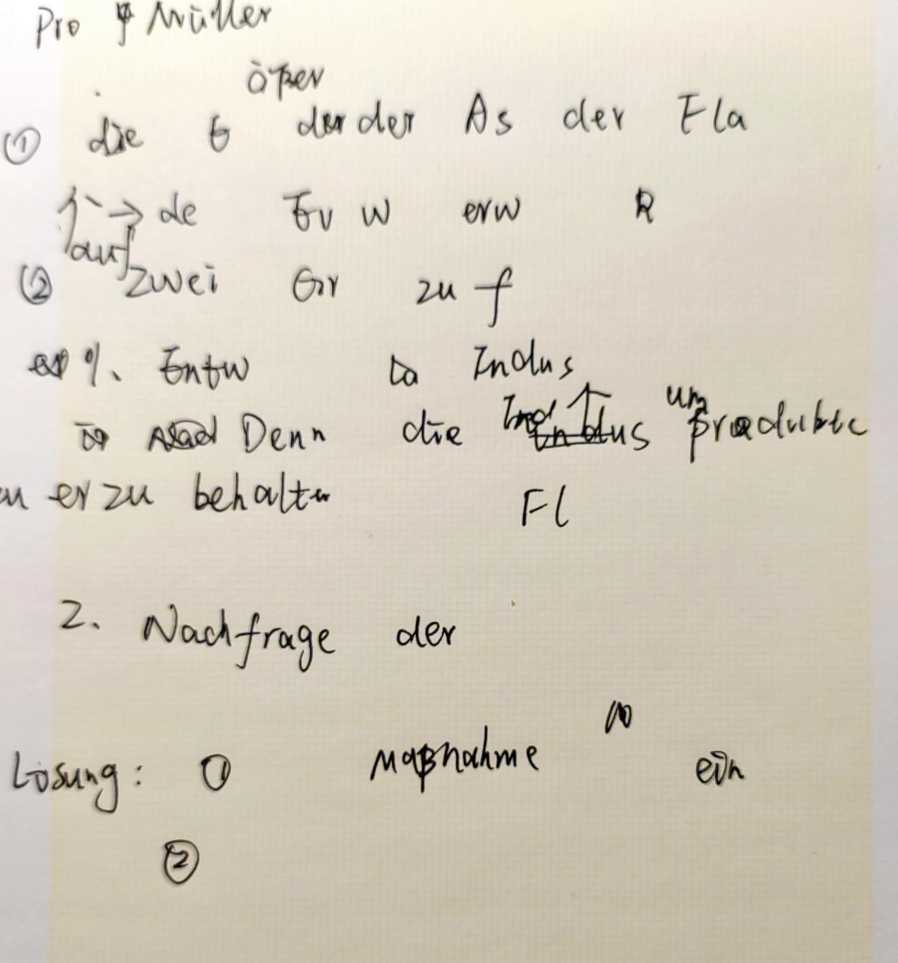 Pro Müller
① die G der der As der Fla
→ de Ev W erw R
auf
② zwei Gr zu f
1. Entw Indus
Denn die Indus um produkte
zu erzu behalten Fl
2. Nachfrage der
Lösung: ① Maßnahme ein
②